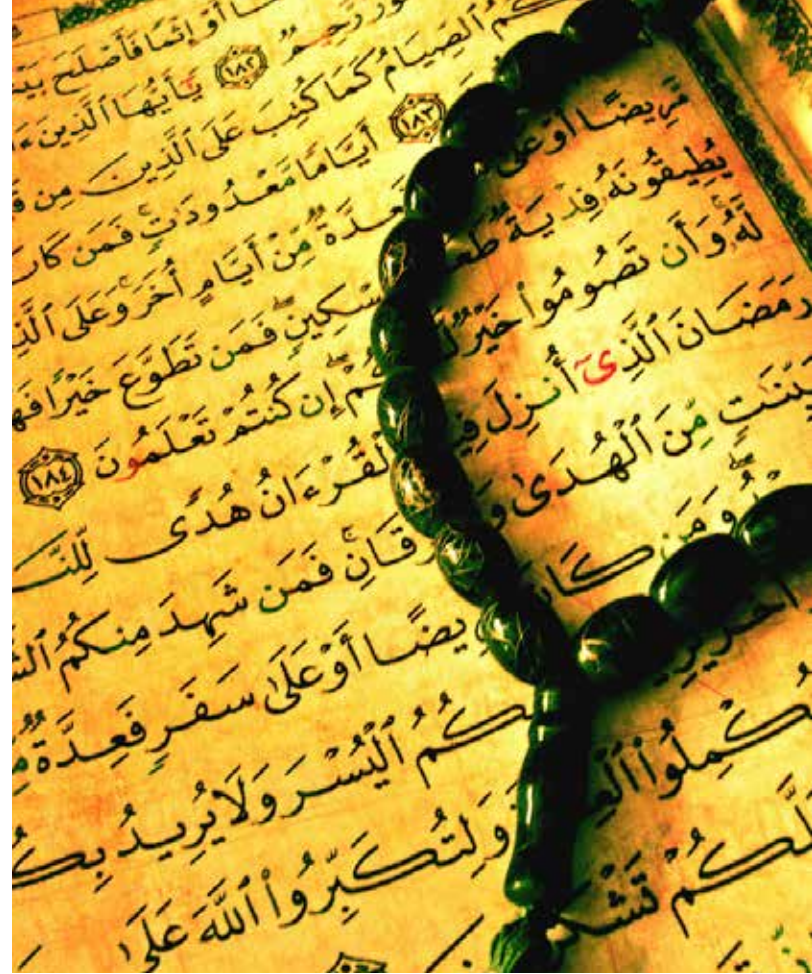 أَوْ إِثْمًا فَأَصْلَحَ
رَّحِيمٌ ١٨٢ يَٰٓأَيُّهَا ٱلَّذِينَ
ٱلصِّيَامُ كَمَا كُتِبَ عَلَى ٱلَّذِينَ مِن
١٨٣ أَيَّامًا مَّعْدُودَٰتٍ ۚ فَمَن كَانَ
مَّرِيضًا أَوْ عَلَىٰ فَعِدَّةٌ مِّنْ أَيَّامٍ أُخَرَ ۚ وَعَلَى
يُطِيقُونَهُۥ فِدْيَةٌ مِسْكِينٍ ۖ فَمَن تَطَوَّعَ خَيْرًا
لَّهُۥ ۚ وَأَن تَصُومُوا۟ خَيْرٌ لَّكُمْ ۖ إِن كُنتُمْ تَعْلَمُونَ ١٨٤
رَمَضَانَ ٱلَّذِىٓ أُنزِلَ فِيهِ ٱلْقُرْءَانُ هُدًى
مِّنَ ٱلْهُدَىٰ وَٱلْفُرْقَانِ ۚ فَمَن شَهِدَ مِنكُمُ
وَمَن كَانَ مَرِيضًا أَوْ عَلَىٰ سَفَرٍ فَعِدَّةٌ
ٱلْيُسْرَ وَلَا يُرِيدُ
وَلِتُكَبِّرُوا۟ ٱللَّهَ عَلَىٰ